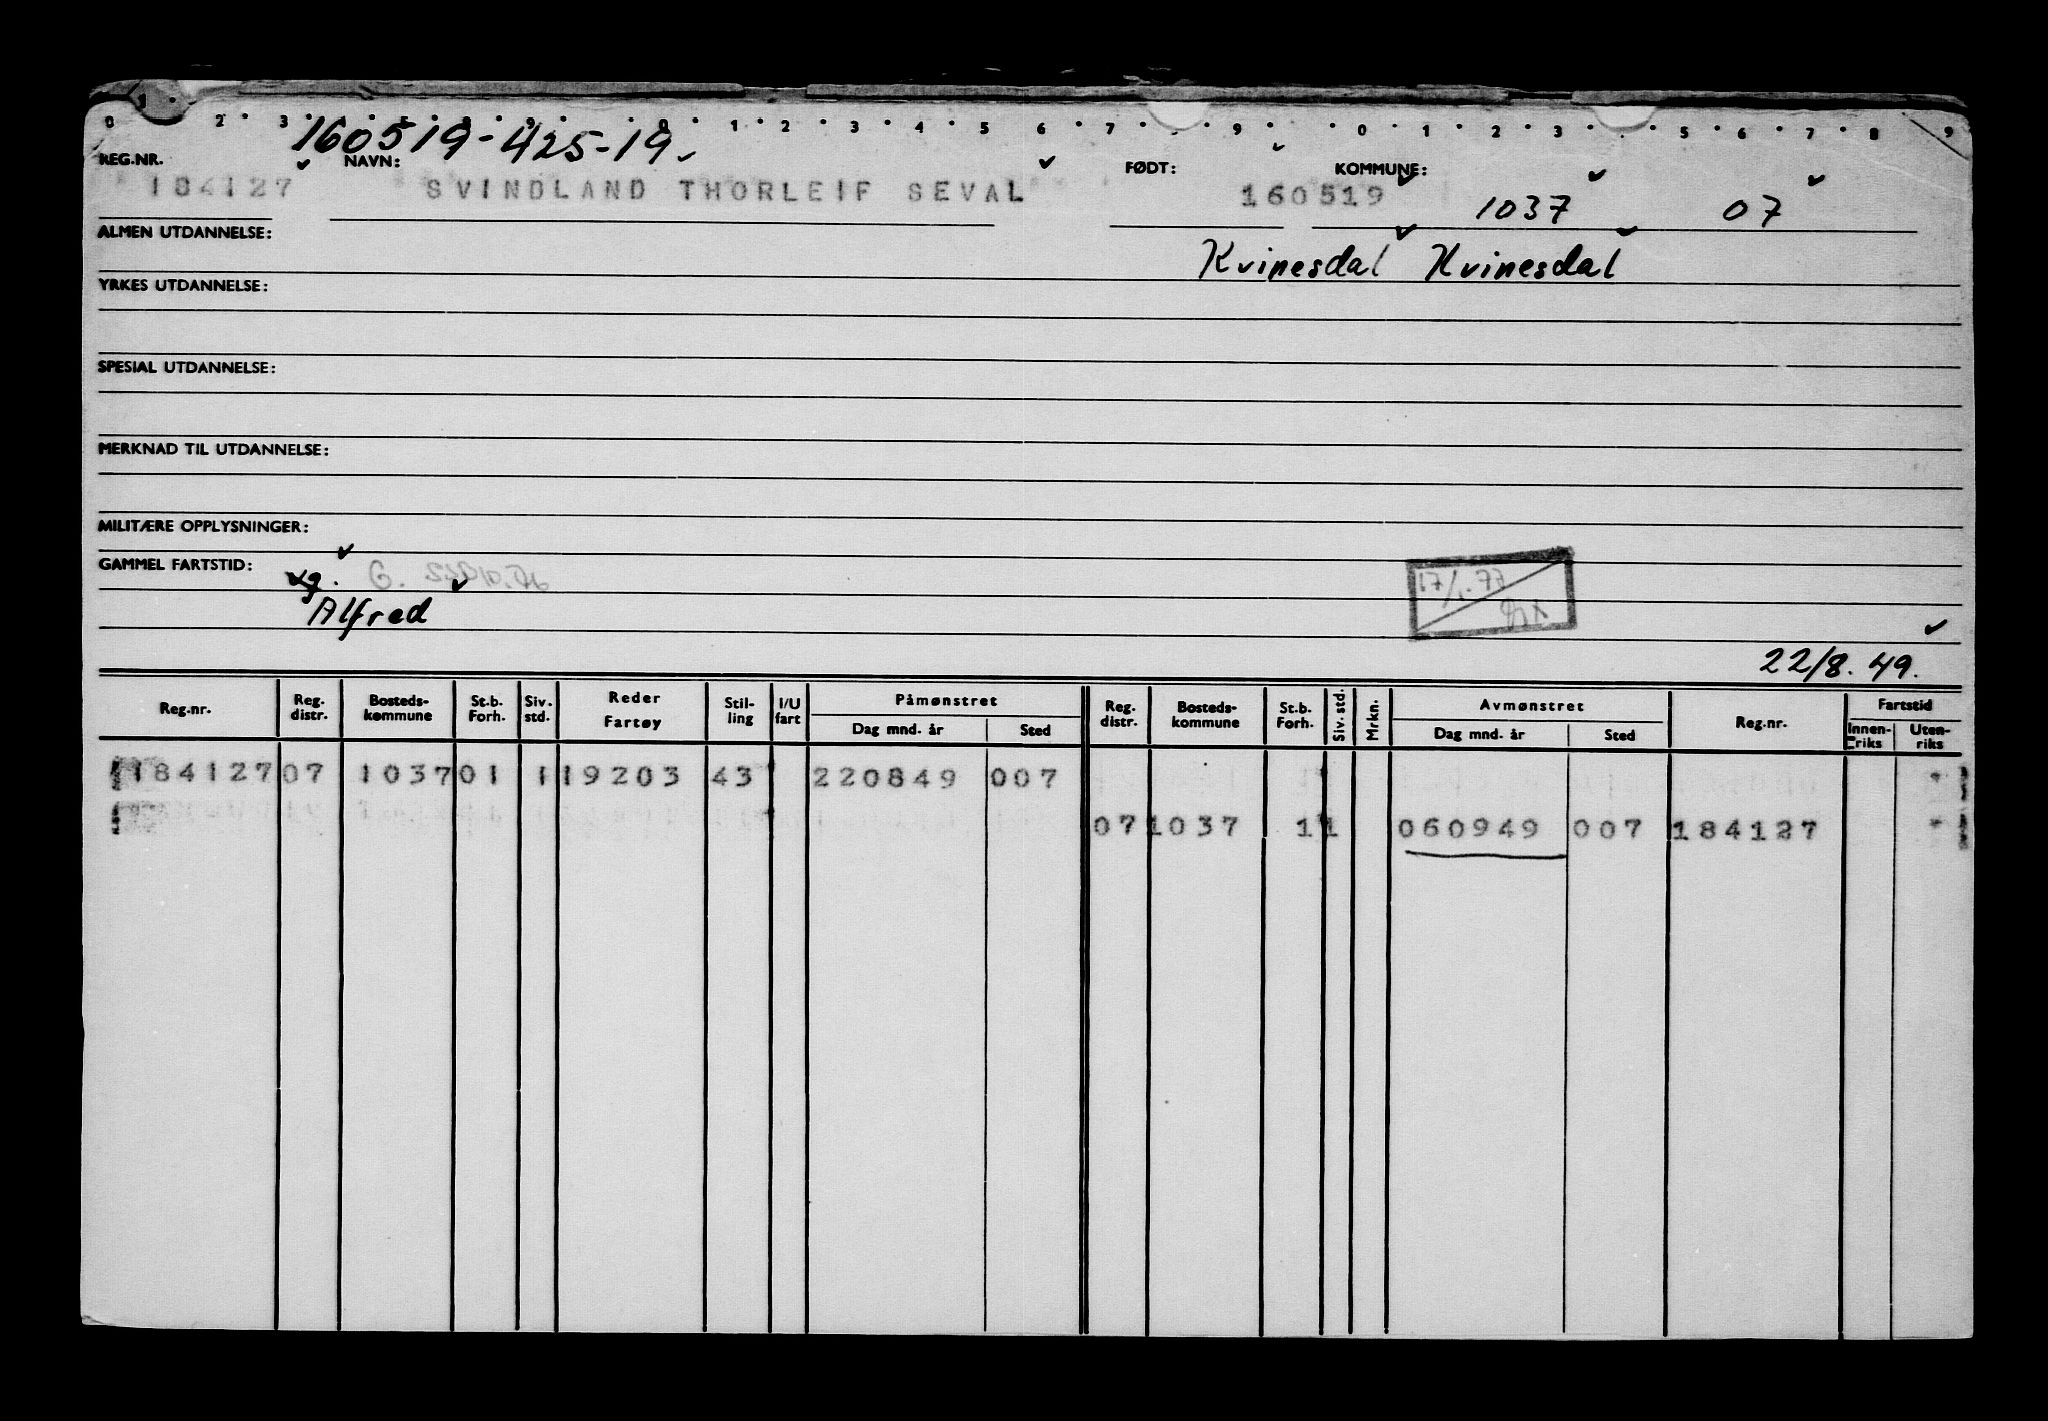 160519-425-19
REG.NR. NAVN: FØDT: KOMMUNE:
184127 SVINDLAND THORLEIF SEVAL 160519 1037 07
ALMEN UTDANNELSE: Kvinesdal Kvinesdal
YRKES UTDANNELSE:
SPESIAL UTDANNELSE:
MERKNAD TIL UTDANNELSE:
MILITÆRE OPPLYSNINGER:
GAMMEL FARTSTID:
Alfred
22/8.49.
Reg.nr. Reg. distr. Bosteds-kommune St.b. Forh. Siv. std. Reder Fartøy Stil-ling I/U fart Påmønstret Dag mnd. år Sted Reg. distr. Bosteds-kommune St.b. Forh. Siv. std. Mrkn. Avmønstret Dag mnd. år Sted Reg.nr. Fartstid Innen-riks Uten-riks
184127 07 1037 01 1 19203 43 220849 007
07 1037 1 1 060949 007 184127